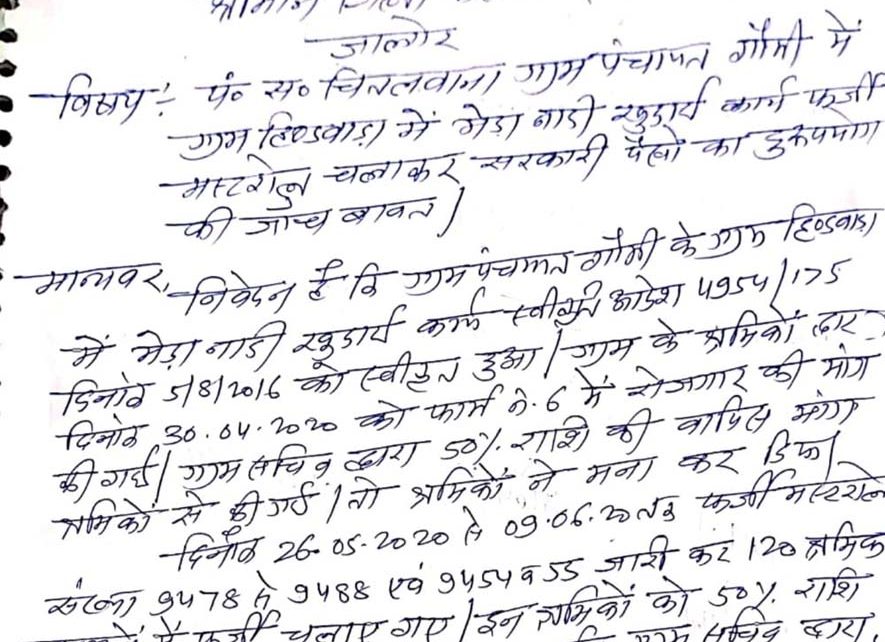 श्रीमान
जालोर
विषय :- पं० स० चितलवाना ग्राम पंचायत गौमी में
ग्राम हिण्डवाड़ा में मेड़ा नाडी खुदाई कार्य फर्जी
मस्टरोल चलाकर सरकारी पैसो का दुरूपयोग
की जाँच बाबत।
मान्यवर,
निवेदन है कि ग्राम पंचायत गौमी के ग्राम हिण्डवाड़ा
में मेड़ा नाडी खुदाई कार्य स्वीकृति आदेश 4954/175
दिनांक 5/8/2016 को स्वीकृत हुआ। ग्राम के श्रमिकों द्वारा
दिनांक 30.04.2020 को फार्म नं. 6 में रोजगार की मांग
की गई। ग्राम सचिव द्वारा 50%. राशि की वापिस मांग
श्रमिकों से की गई। तो श्रमिकों ने मना कर दिया।
दिनांक 26.05.2020 से 09.06.20 तक फर्जी मस्टरोल
संख्या 9478 से 9488 एवं 9454 व 55 जारी कर 120 श्रमिक
में फर्जी चलाए गए। इन श्रमिकों को 50%. राशि
ग्राम सचिव द्वारा